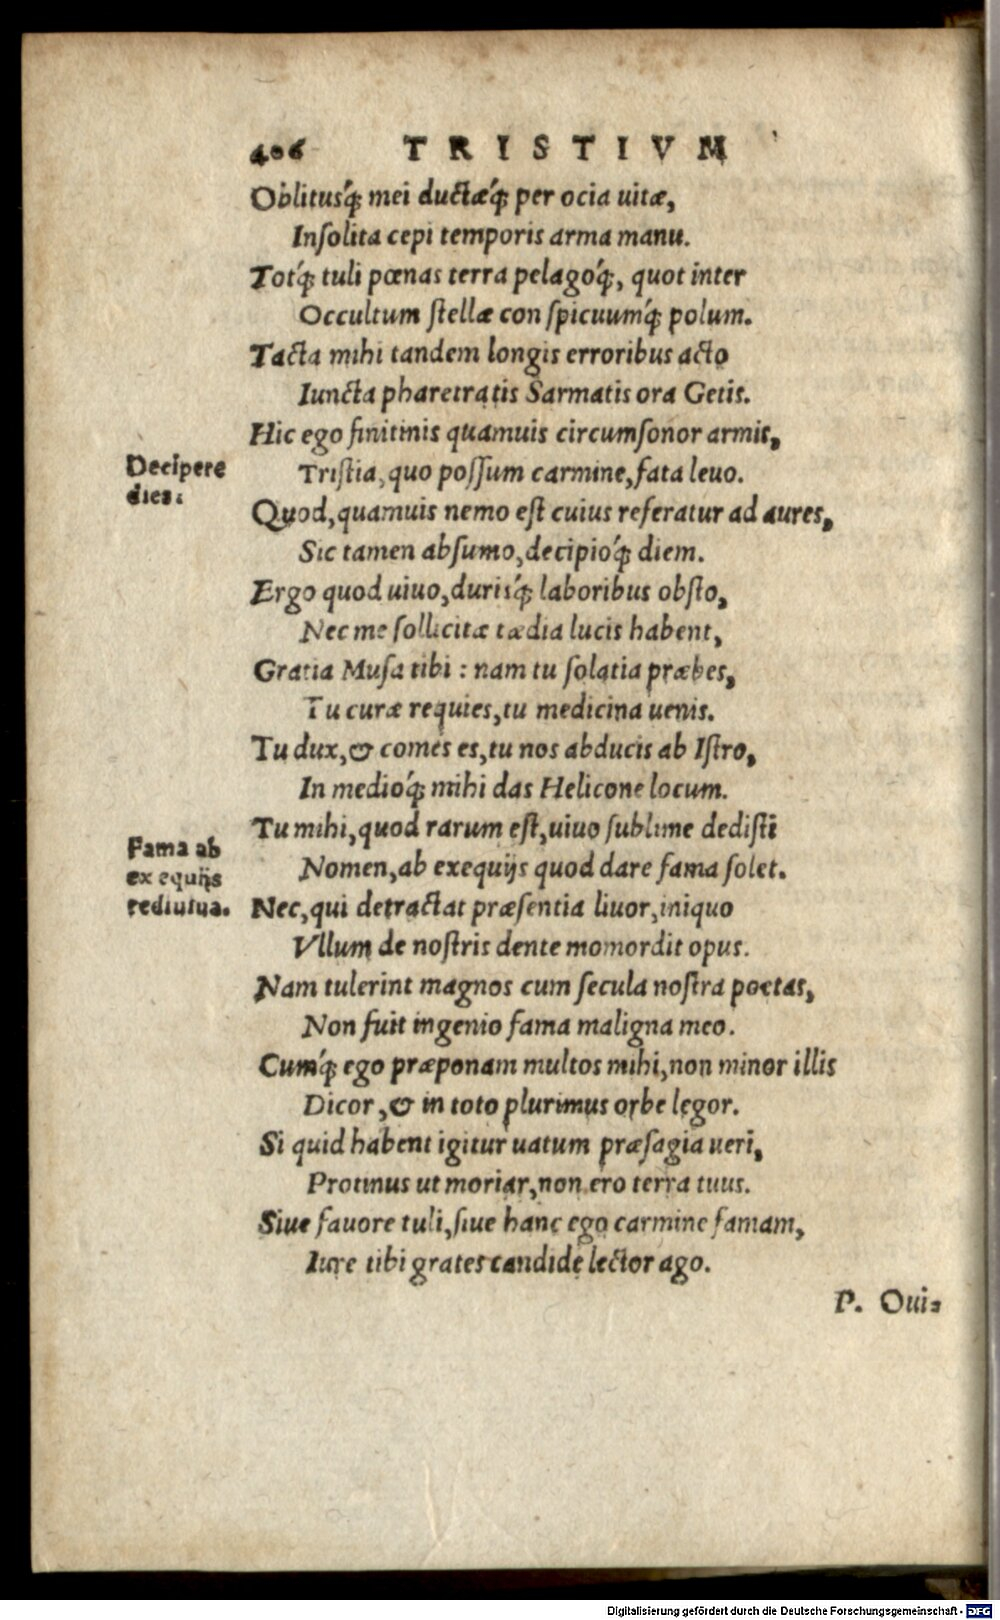 406 TRISTIVM
Oblitusq́; mei ductæq́; per ocia uitæ,
Inſolita cepi temporis arma manu.
Totq́; tuli pœnas terra pelagoq́;, quot inter
Occultum ſtellæ con ſpicuumq́; polum.
Tacta mihi tandem longis erroribus acto
Iuncta pharetratis Sarmatis ora Getis.
Hic ego finitimis quamuis circumſonor armis,
Decipere
Triſtia, quo poſſum carmine, fata leuo.
dies.
Quod, quamuis nemo eſt cuius referatur ad aures,
Sic tamen abſumo, decipioq́; diem.
Ergo quod uiuo, durisq́; laboribus obſto,
Nec me ſollicitæ tædia lucis habent,
Gratia Muſa tibi: nam tu ſolatia præbes,
Tu curæ requies, tu medicina uenis.
Tu dux, & comes es, tu nos abducis ab Iſtro,
In medioq́; mihi das Helicone locum.
Tu mihi, quod rarum eſt, uiuo ſublime dediſti
Fama ab
Nomen, ab exequijs quod dare fama ſolet.
exequijs
rediuiua.
Nec, qui detractat præſentia liuor, iniquo
Vllum de noſtris dente momordit opus.
Nam tulerint magnos cum ſecula noſtra poetas,
Non fuit ingenio fama maligna meo.
Cumq́; ego præponam multos mihi, non minor illis
Dicor, & in toto plurimus orbe legor.
Si quid habent igitur uatum præſagia ueri,
Protinus ut moriar, non ero terra tuus.
Siue fauore tuli, ſiue hanc ego carmine famam,
Iure tibi grates candide lector ago.
P. Oui-
Digitalisierung gefördert durch die Deutsche Forschungsgemeinschaft - DFG